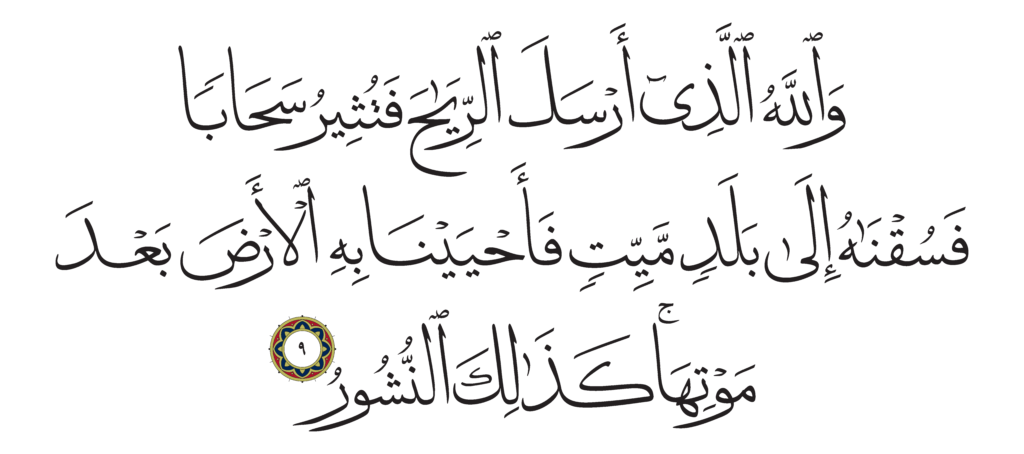 وَٱللَّهُ ٱلَّذِىٓ أَرْسَلَ ٱلرِّيَـٰحَ فَتُثِيرُ سَحَابًا
فَسُقْنَـٰهُ إِلَىٰ بَلَدٍ مَّيِّتٍ فَأَحْيَيْنَا بِهِ ٱلْأَرْضَ بَعْدَ
مَوْتِهَا ۚ كَذَٰلِكَ ٱلنُّشُورُ ٩